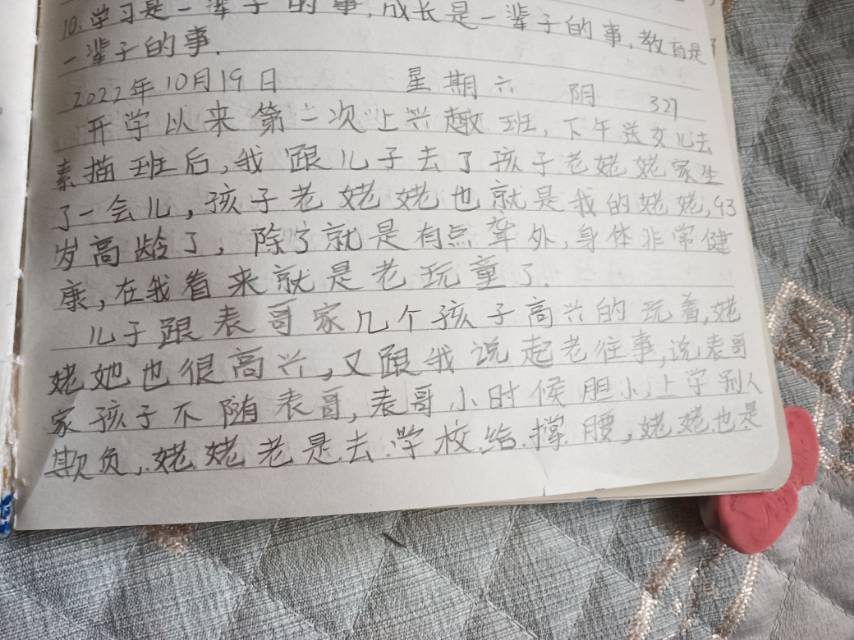 10.学习是一辈子的事,成长是一辈子的事,教育是
一辈子的事.
2022年10月19日 星期六 阴 327
开学以来第二次上兴趣班,下午送女儿去
素描班后,我跟儿子去了孩子老姥姥家生
了一会儿,孩子老姥姥也就是我的姥姥,93
岁高龄了,除了就是有点聋外,身体非常健
康,在我看来就是老玩童了.
儿子跟表哥家几个孩子高兴的玩着,姥
姥她也很高兴,又跟我说起老往事,说表哥
家孩子不随表哥,表哥小时候胆小,上学别人
欺负,姥姥老是去学校给撑腰,姥姥也是